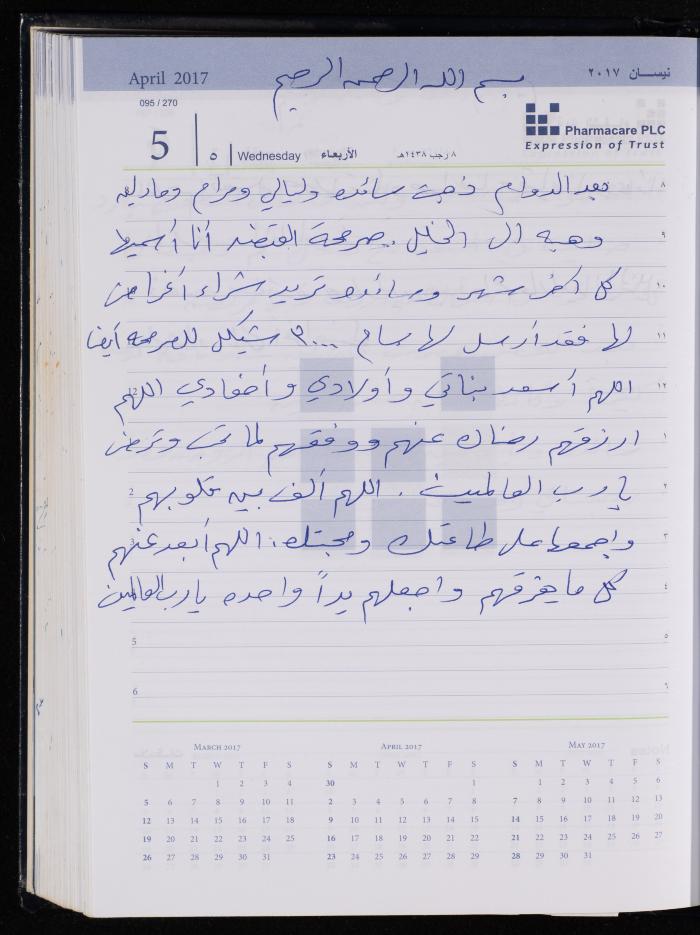 April 2017
بسم الله الرحمن الرحيم
نيسـان ٢٠١٧
095 / 270
5
٥
Wednesday
الأربعاء
٨ رجب ١٤٣٨هـ
Pharmacare PLC
Expression of Trust
٨ بعد الدوام ذهبت سائده وليالي ومرام
٩ وهبه الى الخليل. صرحة القبضه أنا أسميها
١٠ كل آخر شهر وسائده تريد شراء أغراض
١١ لها فقد أرسل لها بسام ٣٠٠٠ شيكل للصرحه أيضا
١٢ اللهم أسعد بناتي وأولادي وأحفادي اللهم 12
١ ارزقهم رضاك عنهم ووفقهم لما تحب وترضى
٢ يا رب العالمين. اللهم ألف بين قلوبهم 2
٣ واجمعها على طاعتك ومحبتك. اللهم أبعد عنهم 3
٤ كل ما يفرقهم واجعلهم يداً واحده يا رب العالمين
5 ٥
6 ٦
March 2017
S M T W T F S
1 2 3 4
5 6 7 8 9 10 11
12 13 14 15 16 17 18
19 20 21 22 23 24 25
26 27 28 29 30 31
April 2017
S M T W T F S
30 1
2 3 4 5 6 7 8
9 10 11 12 13 14 15
16 17 18 19 20 21 22
23 24 25 26 27 28 29
May 2017
S M T W T F S
1 2 3 4 5 6
7 8 9 10 11 12 13
14 15 16 17 18 19 20
21 22 23 24 25 26 27
28 29 30 31